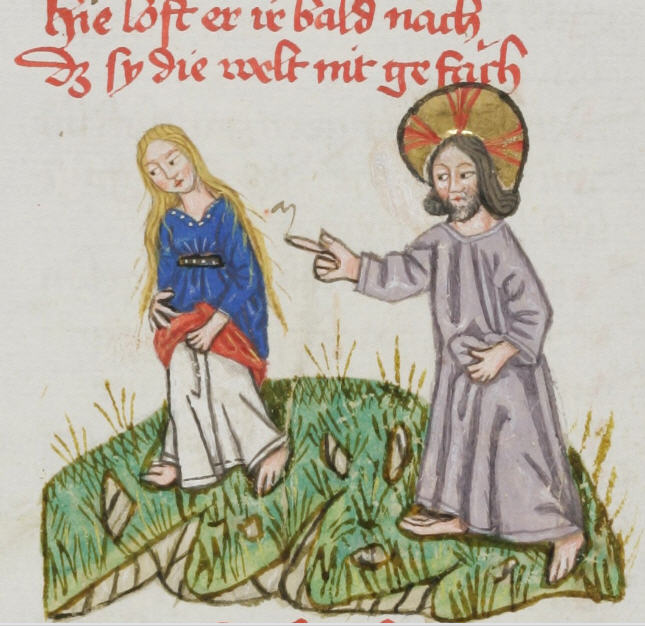 Hie loͤft er ir bald nach
Dz sy die welt nit gefach